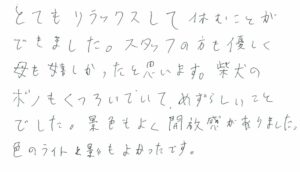 とてもリラックスして休むことが
できました。スタッフの方も優しく
母も嬉しかったと思います。柴犬の
ボノもくつろいでいて、めずらしいこと
でした。景色もよく開放感がありました。
色のライトと影もよかったです。